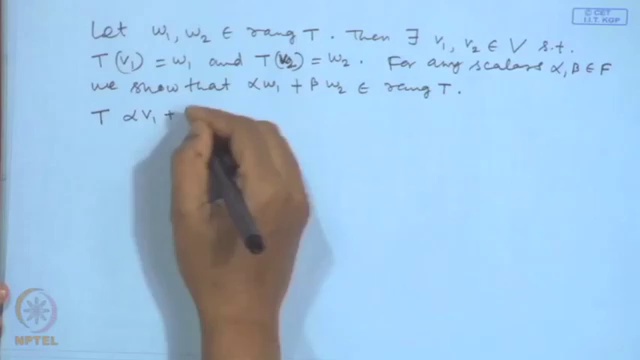 © CET
I.I.T. KGP
Let w₁, w₂ ∈ rang T. Then ∃ v₁, v₂ ∈ V s.t.
T(v₁) = w₁ and T(v₂) = w₂. For any scalars α, β ∈ F
we show that αw₁ + βw₂ ∈ rang T.
T αv₁ +
NPTEL